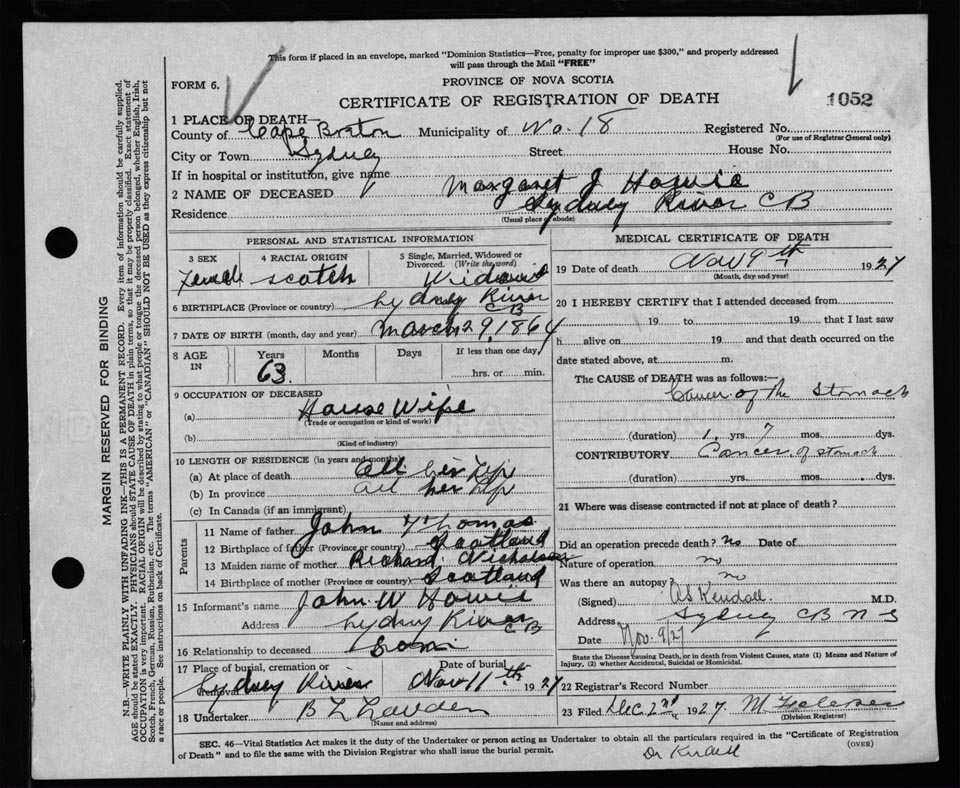 This form if placed in an envelope, marked "Dominion Statistics—Free, penalty for improper use $300," and properly addressed
will pass through the Mail "FREE"
FORM 6.
PROVINCE OF NOVA SCOTIA
CERTIFICATE OF REGISTRATION OF DEATH
1052
1 PLACE OF DEATH—
County of Cape Breton Municipality of No. 18 Registered No.
(For use of Registrar General only)
City or Town Sydney Street House No.
If in hospital or institution, give name
2 NAME OF DECEASED Margaret J Howie
Residence Sydney River CB
(Usual place of abode)
PERSONAL AND STATISTICAL INFORMATION
3 SEX 4 RACIAL ORIGIN 5 Single, Married, Widowed or
Divorced. (Write the word)
Female Scotch
6 BIRTHPLACE (Province or country) Sydney River
CB
7 DATE OF BIRTH (month, day and year) March 29, 1864
8 AGE IN Years Months Days If less than one day,
63. hrs. or min.
9 OCCUPATION OF DECEASED
(a) House Wife
(Trade or occupation or kind of work)
(b)
(Kind of industry)
10 LENGTH OF RESIDENCE (in years and months)
(a) At place of death all her Life
(b) In province all her Life
(c) In Canada (if an immigrant)
Parents
11 Name of father John Thomas
12 Birthplace of father (Province or country) Scotland
13 Maiden name of mother Nicholson
14 Birthplace of mother (Province or country) Scotland
15 Informant's name John W Howie
Address Sydney River
CB
16 Relationship to deceased Son
17 Place of burial, cremation or removal Date of burial
Sydney River Nov 11th 1927
18 Undertaker
(Name and address)
MEDICAL CERTIFICATE OF DEATH
19 Date of death Nov 9th 1927
(Month, day and year)
20 I HEREBY CERTIFY that I attended deceased from
19 to 19 that I last saw
h alive on 19 and that death occurred on the
date stated above, at m.
The CAUSE of DEATH was as follows:—
Cancer of the Stomach
(duration) 1. yrs. 7 mos. dys.
CONTRIBUTORY Cancer of stomach
(duration) yrs. mos. dys.
21 Where was disease contracted if not at place of death?
Did an operation precede death? No Date of
Nature of operation no
Was there an autopsy? no
(Signed) AS Kendall. M.D.
Address Sydney CB NS
Date Nov. 9/27
State the Disease causing Death, or in death from Violent Causes, state (1) Means and Nature of
Injury, (2) whether Accidental, Suicidal or Homicidal.
22 Registrar's Record Number
23 Filed Dec 2nd 1927
(Division Registrar)
SEC. 46—Vital Statistics Act makes it the duty of the Undertaker or person acting as Undertaker to obtain all the particulars required in the "Certificate of Registration
of Death" and to file the same with the Division Registrar who shall issue the burial permit.
(OVER)
MARGIN RESERVED FOR BINDING
N.B.—WRITE PLAINLY WITH UNFADING INK—THIS IS A PERMANENT RECORD. Every item of information should be carefully supplied.
AGE should be stated EXACTLY. PHYSICIANS should STATE CAUSE OF DEATH in plain terms, so that it may be properly classified. Exact statement of
OCCUPATION is very important. RACIAL ORIGIN will be described by stating to what people or tongue the deceased person belonged, whether English, Irish,
Scotch, French, German, Russian, Ruthenian, etc. The terms "AMERICAN" or "CANADIAN" SHOULD NOT BE USED as they express citizenship but not
a race or people. See instructions on back of Certificate.